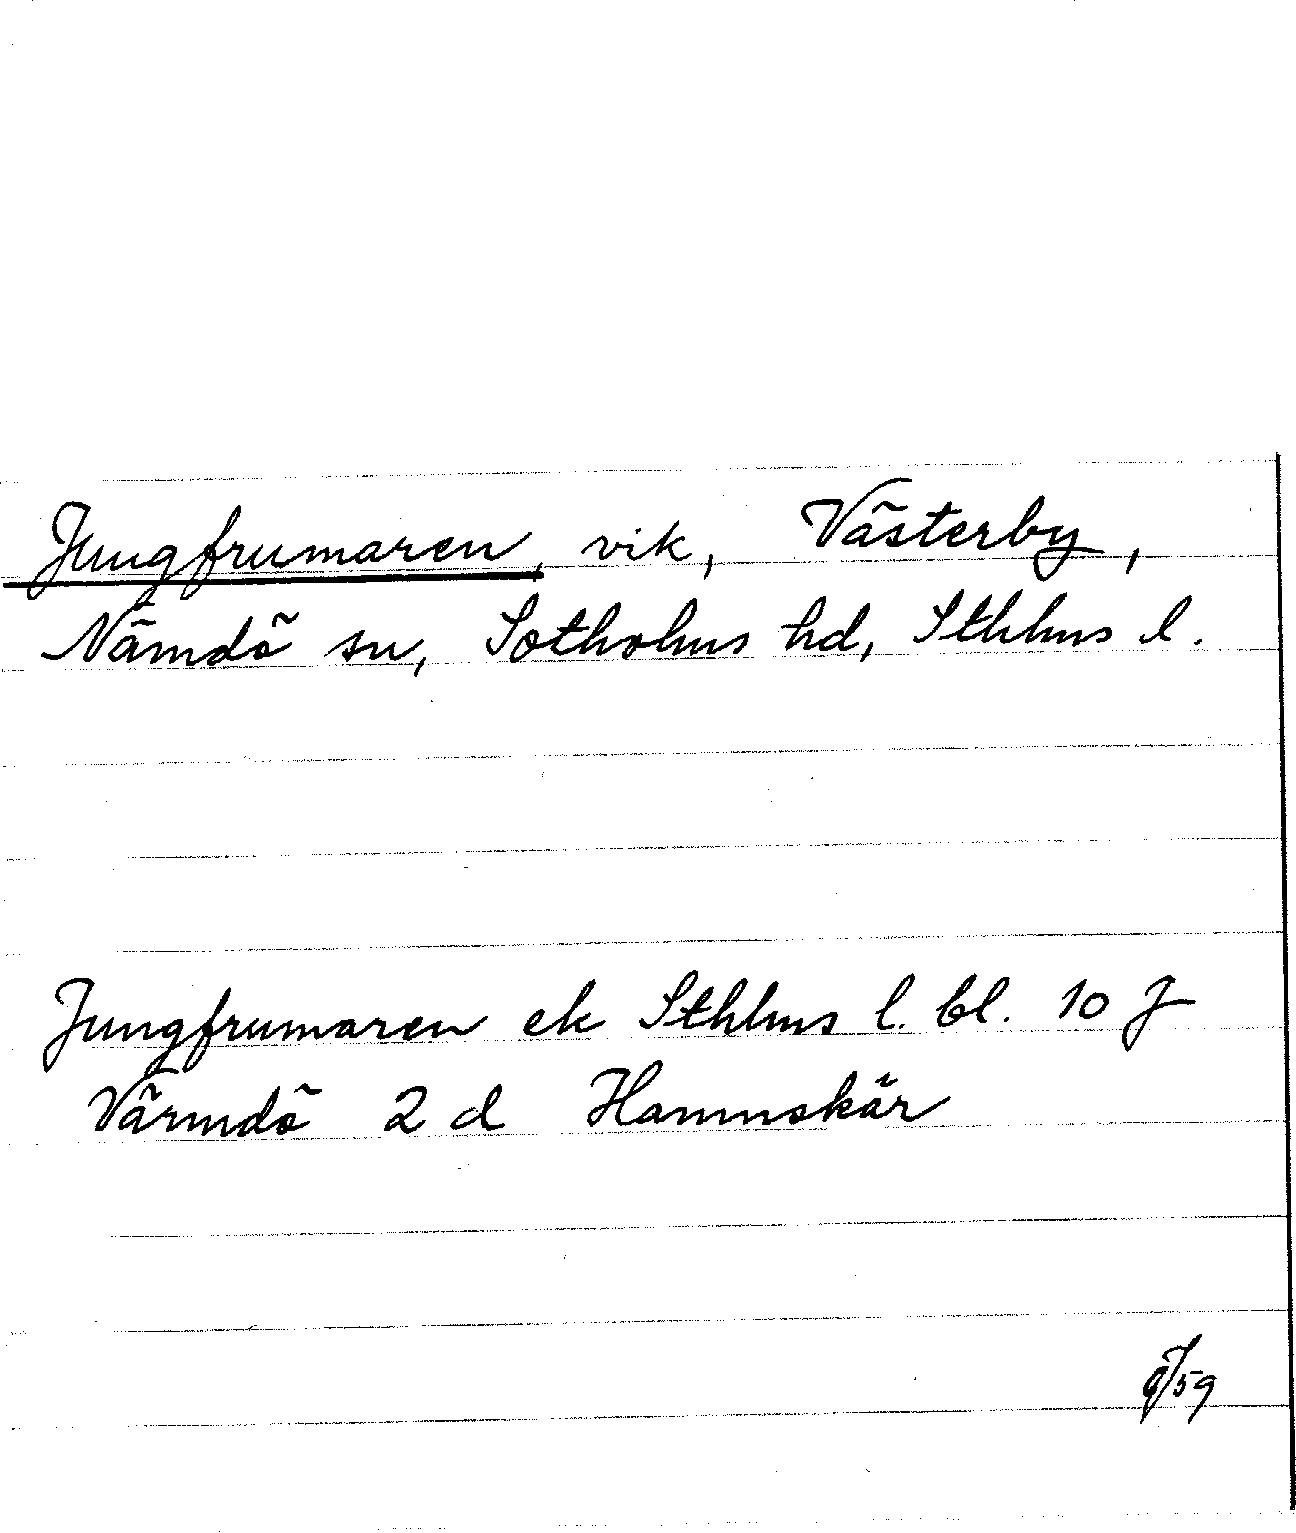 Jungfrumaren, vik, Västerby,
Nämdö sn, Sotholms hd, Sthlms l.
Jungfrumaren ek Sthlms l. bl. 10 J
Värmdö 2 d Hamnskär